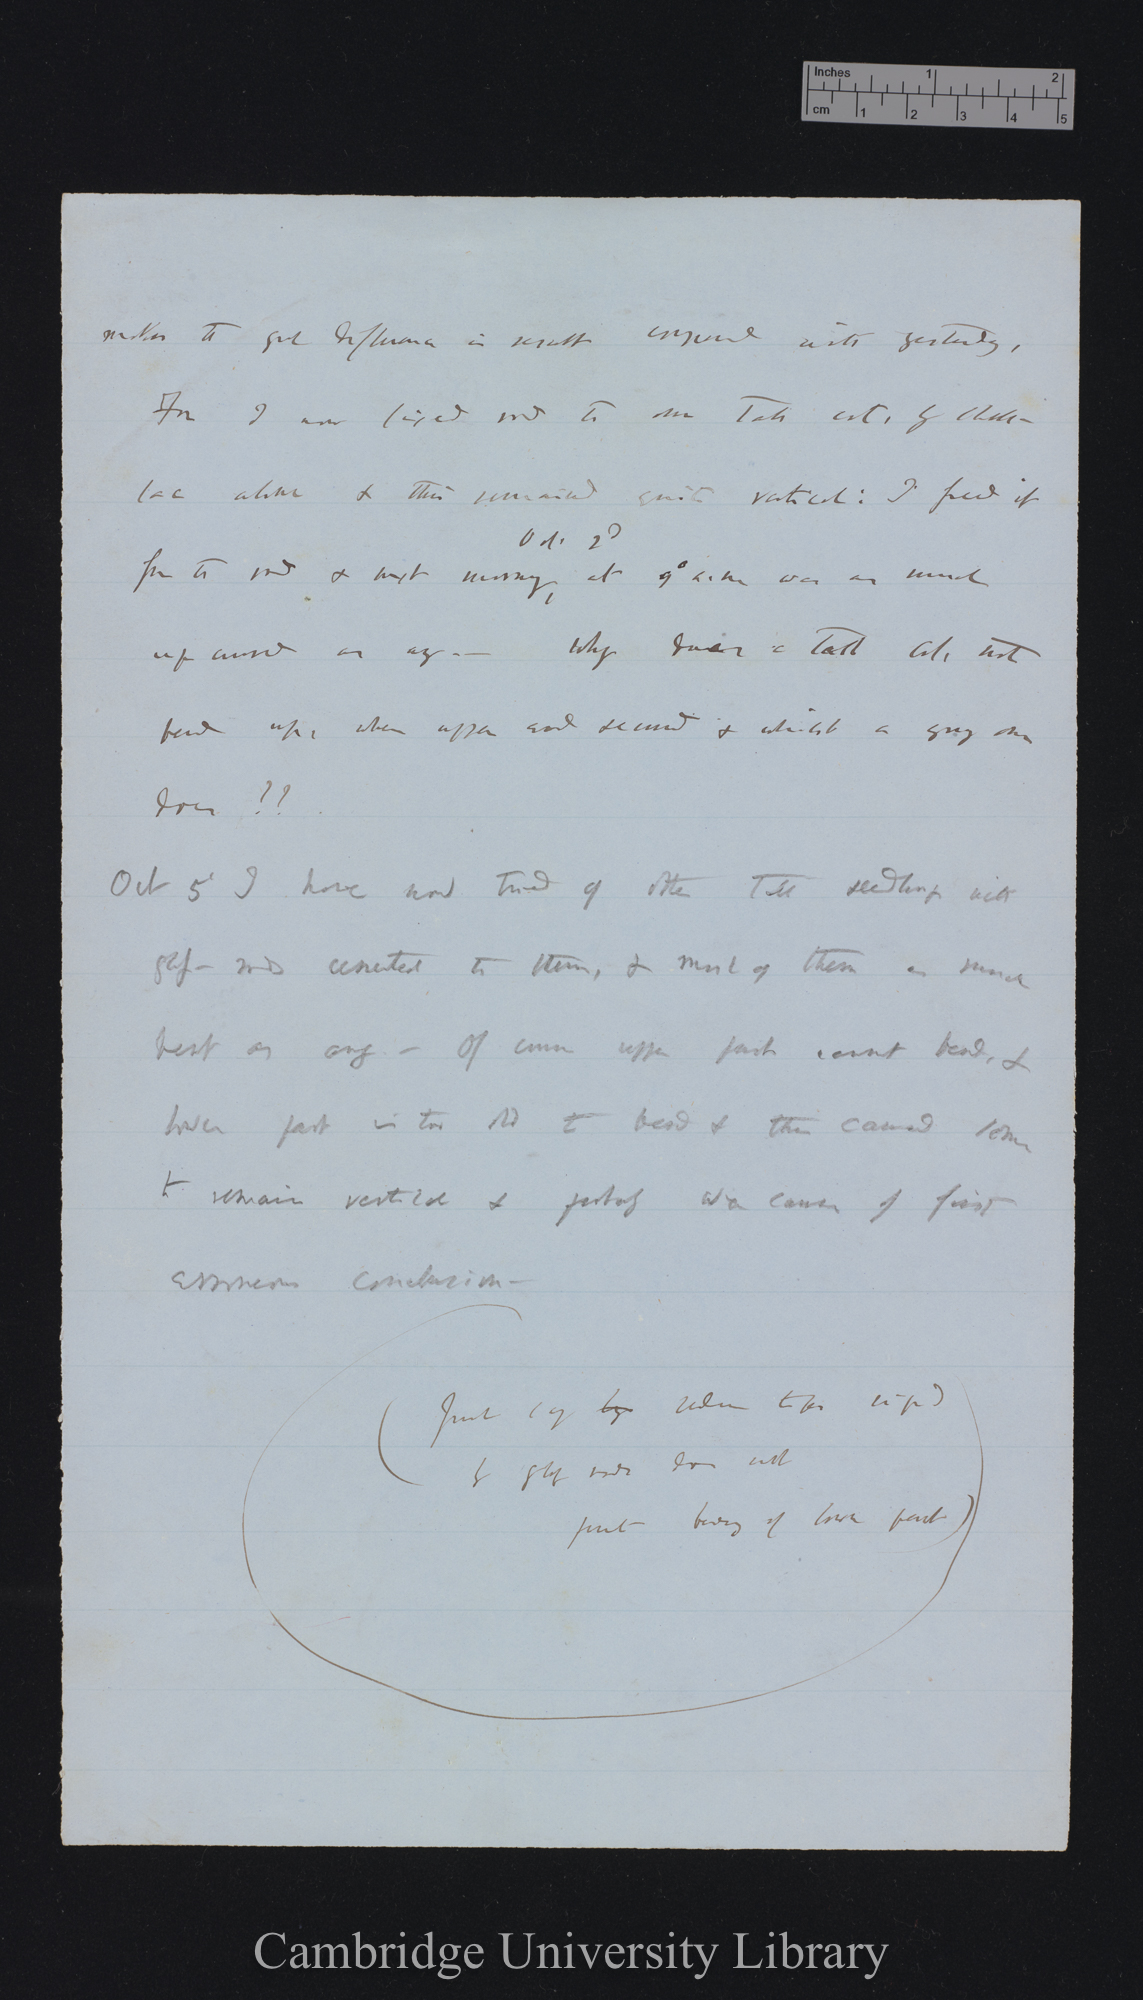 Inches 1 2
cm 1 2 3 4 5
makes the great difference in result compared with yesterday,
For I now fixed rod to one Tall cot. by Shell-
lac alone & this remained quite vertical: I freed it
Oct. 3d
from the rod & next morning, at 9° a.m. was as much
up curved as any.— Why does a Tall Cot, not
bend up, when upper end secured & whilst a young one
does !!
Oct 5' I have now tried of other Tall seedlings with
glass- rods cemented to them, & most of them as much
bent as any — Of course upper part cannot bend, &
lower part is too old to bend & this caused some
to remain vertical & probably was cause of first
erroneous conclusion—
( Just say when tips
by glass rods does not
prevent bending of lower part )
Cambridge University Library